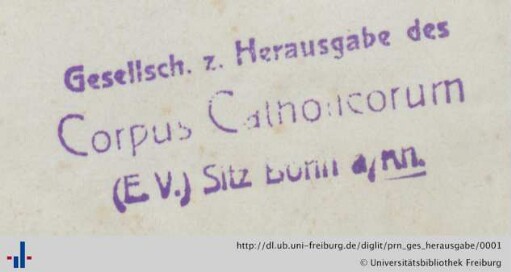 Gesellsch. z. Herausgabe des
Corpus Catholicorum
(E.V.) Sitz Bonn a/Rh.
http://dl.ub.uni-freiburg.de/diglit/prn_ges_herausgabe/0001
© Universitätsbibliothek Freiburg